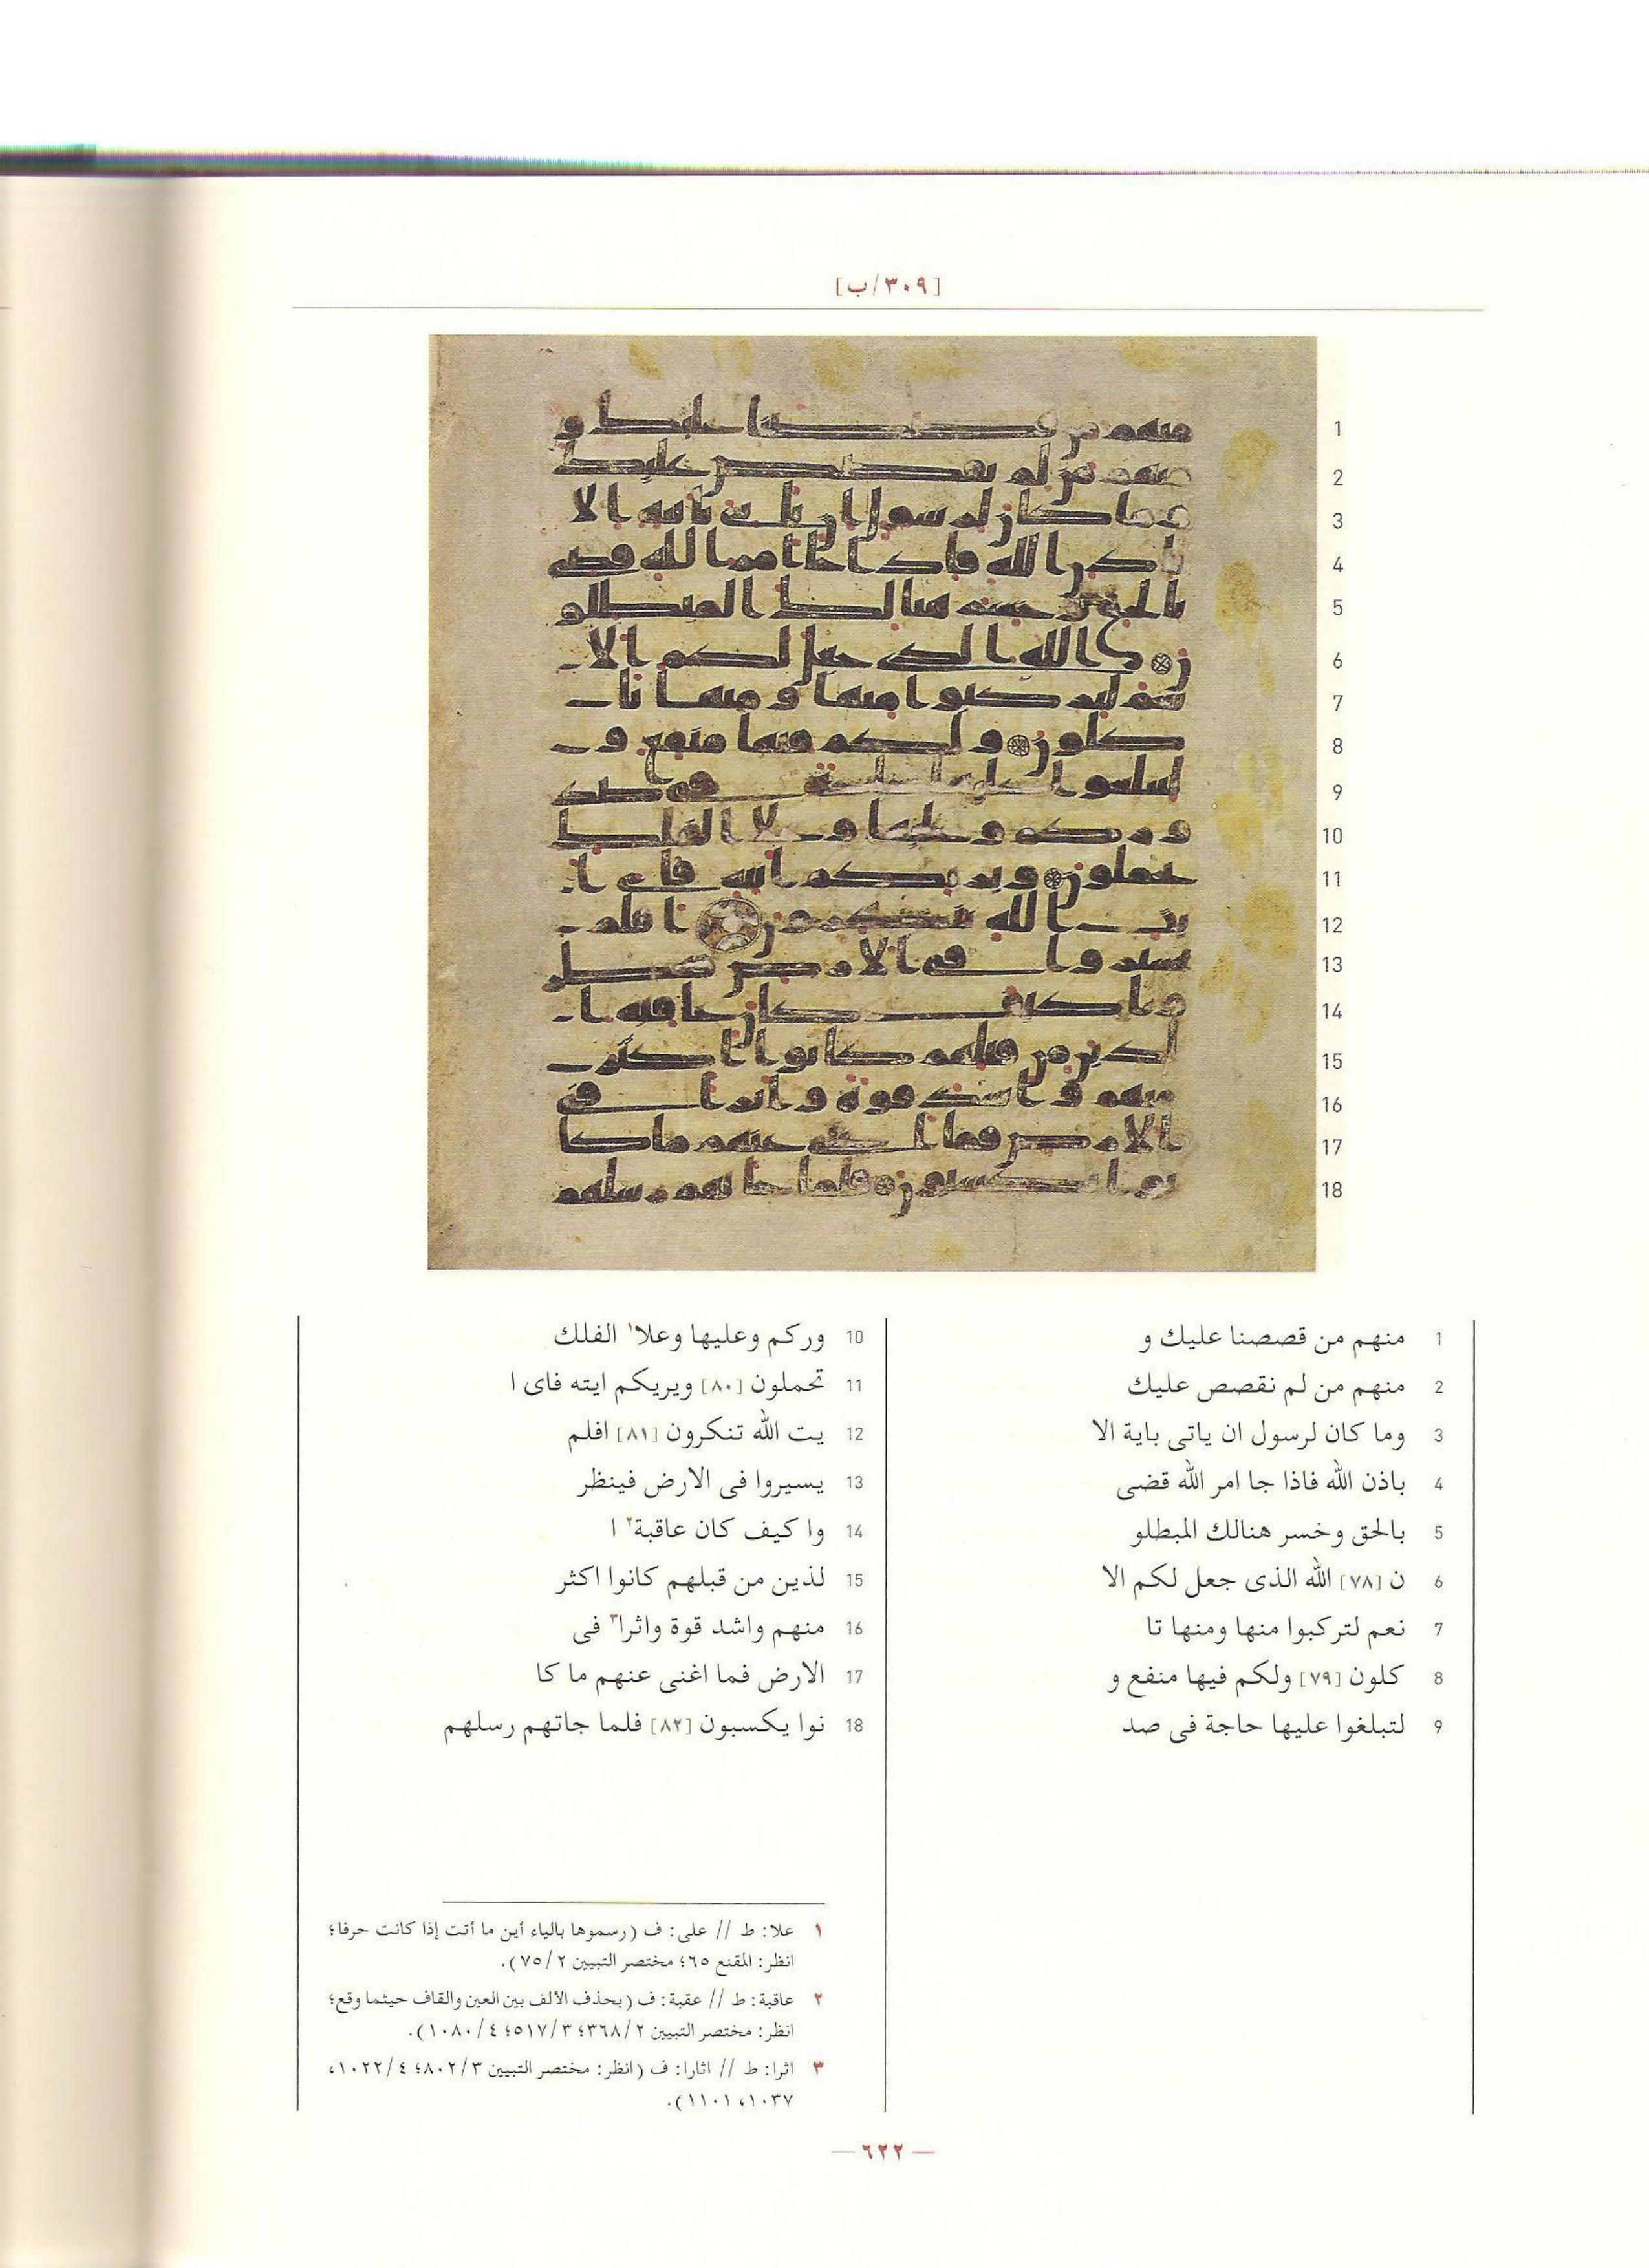 [٣٠٩/ب]
1
2
3
4
5
6
7
8
9
10
11
12
13
14
15
16
17
18
1 منهم من قصصنا عليك و
2 منهم من لم نقصص عليك
3 وما كان لرسول ان ياتى باية الا
4 باذن الله فاذا جا امر الله قضى
5 بالحق وخسر هنالك المبطلو
6 ن [٧٨] الله الذى جعل لكم الا
7 نعم لتركبوا منها ومنها تا
8 كلون [٧٩] ولكم فيها منفع و
9 لتبلغوا عليها حاجة فى صد
10 وركم وعليها وعلا١ الفلك
11 تحملون [٨٠] ويريكم ايته فاى ا
12 يت الله تنكرون [٨١] افلم
13 يسيروا فى الارض فينظر
14 وا كيف كان عاقبة٢ ا
15 لذين من قبلهم كانوا اكثر
16 منهم واشد قوة واثرا٣ فى
17 الارض فما اغنى عنهم ما كا
18 نوا يكسبون [٨٢] فلما جاتهم رسلهم
١ علا: ط // على: ف (رسموها بالياء أين ما أتت إذا كانت حرفا؛
انظر: المقنع ٦٥؛ مختصر التبيين ٧٥/٢).
٢ عاقبة: ط // عقبة: ف (بحذف الألف بين العين والقاف حيثما وقع؛
انظر: مختصر التبيين ٣٦٨/٢؛ ٥١٧/٣؛ ١٠٨٠/٤).
٣ اثرا: ط // اثارا: ف (انظر: مختصر التبيين ٨٠٢/٣؛ ١٠٢٢/٤،
١٠٣٧، ١١٠١).
— ٦٢٢ —